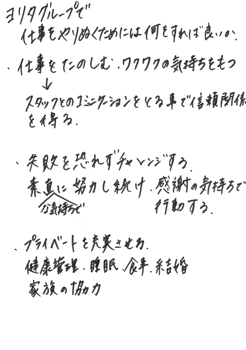 ヨリタグループで
仕事をやりぬくためには何をすれば良いか.
・仕事をたのしむ.ワクワクの気持ちをもつ
↓
スタッフとのコミニケーションをとる事で信頼関係
を得る.
・失敗を恐れずチャレンジする.
素直に努力し続け.感謝の気持ちで
な気持ちで
行動する.
・プライベートを充実させる.
健康管理.睡眠.食事.結婚
家族の協力